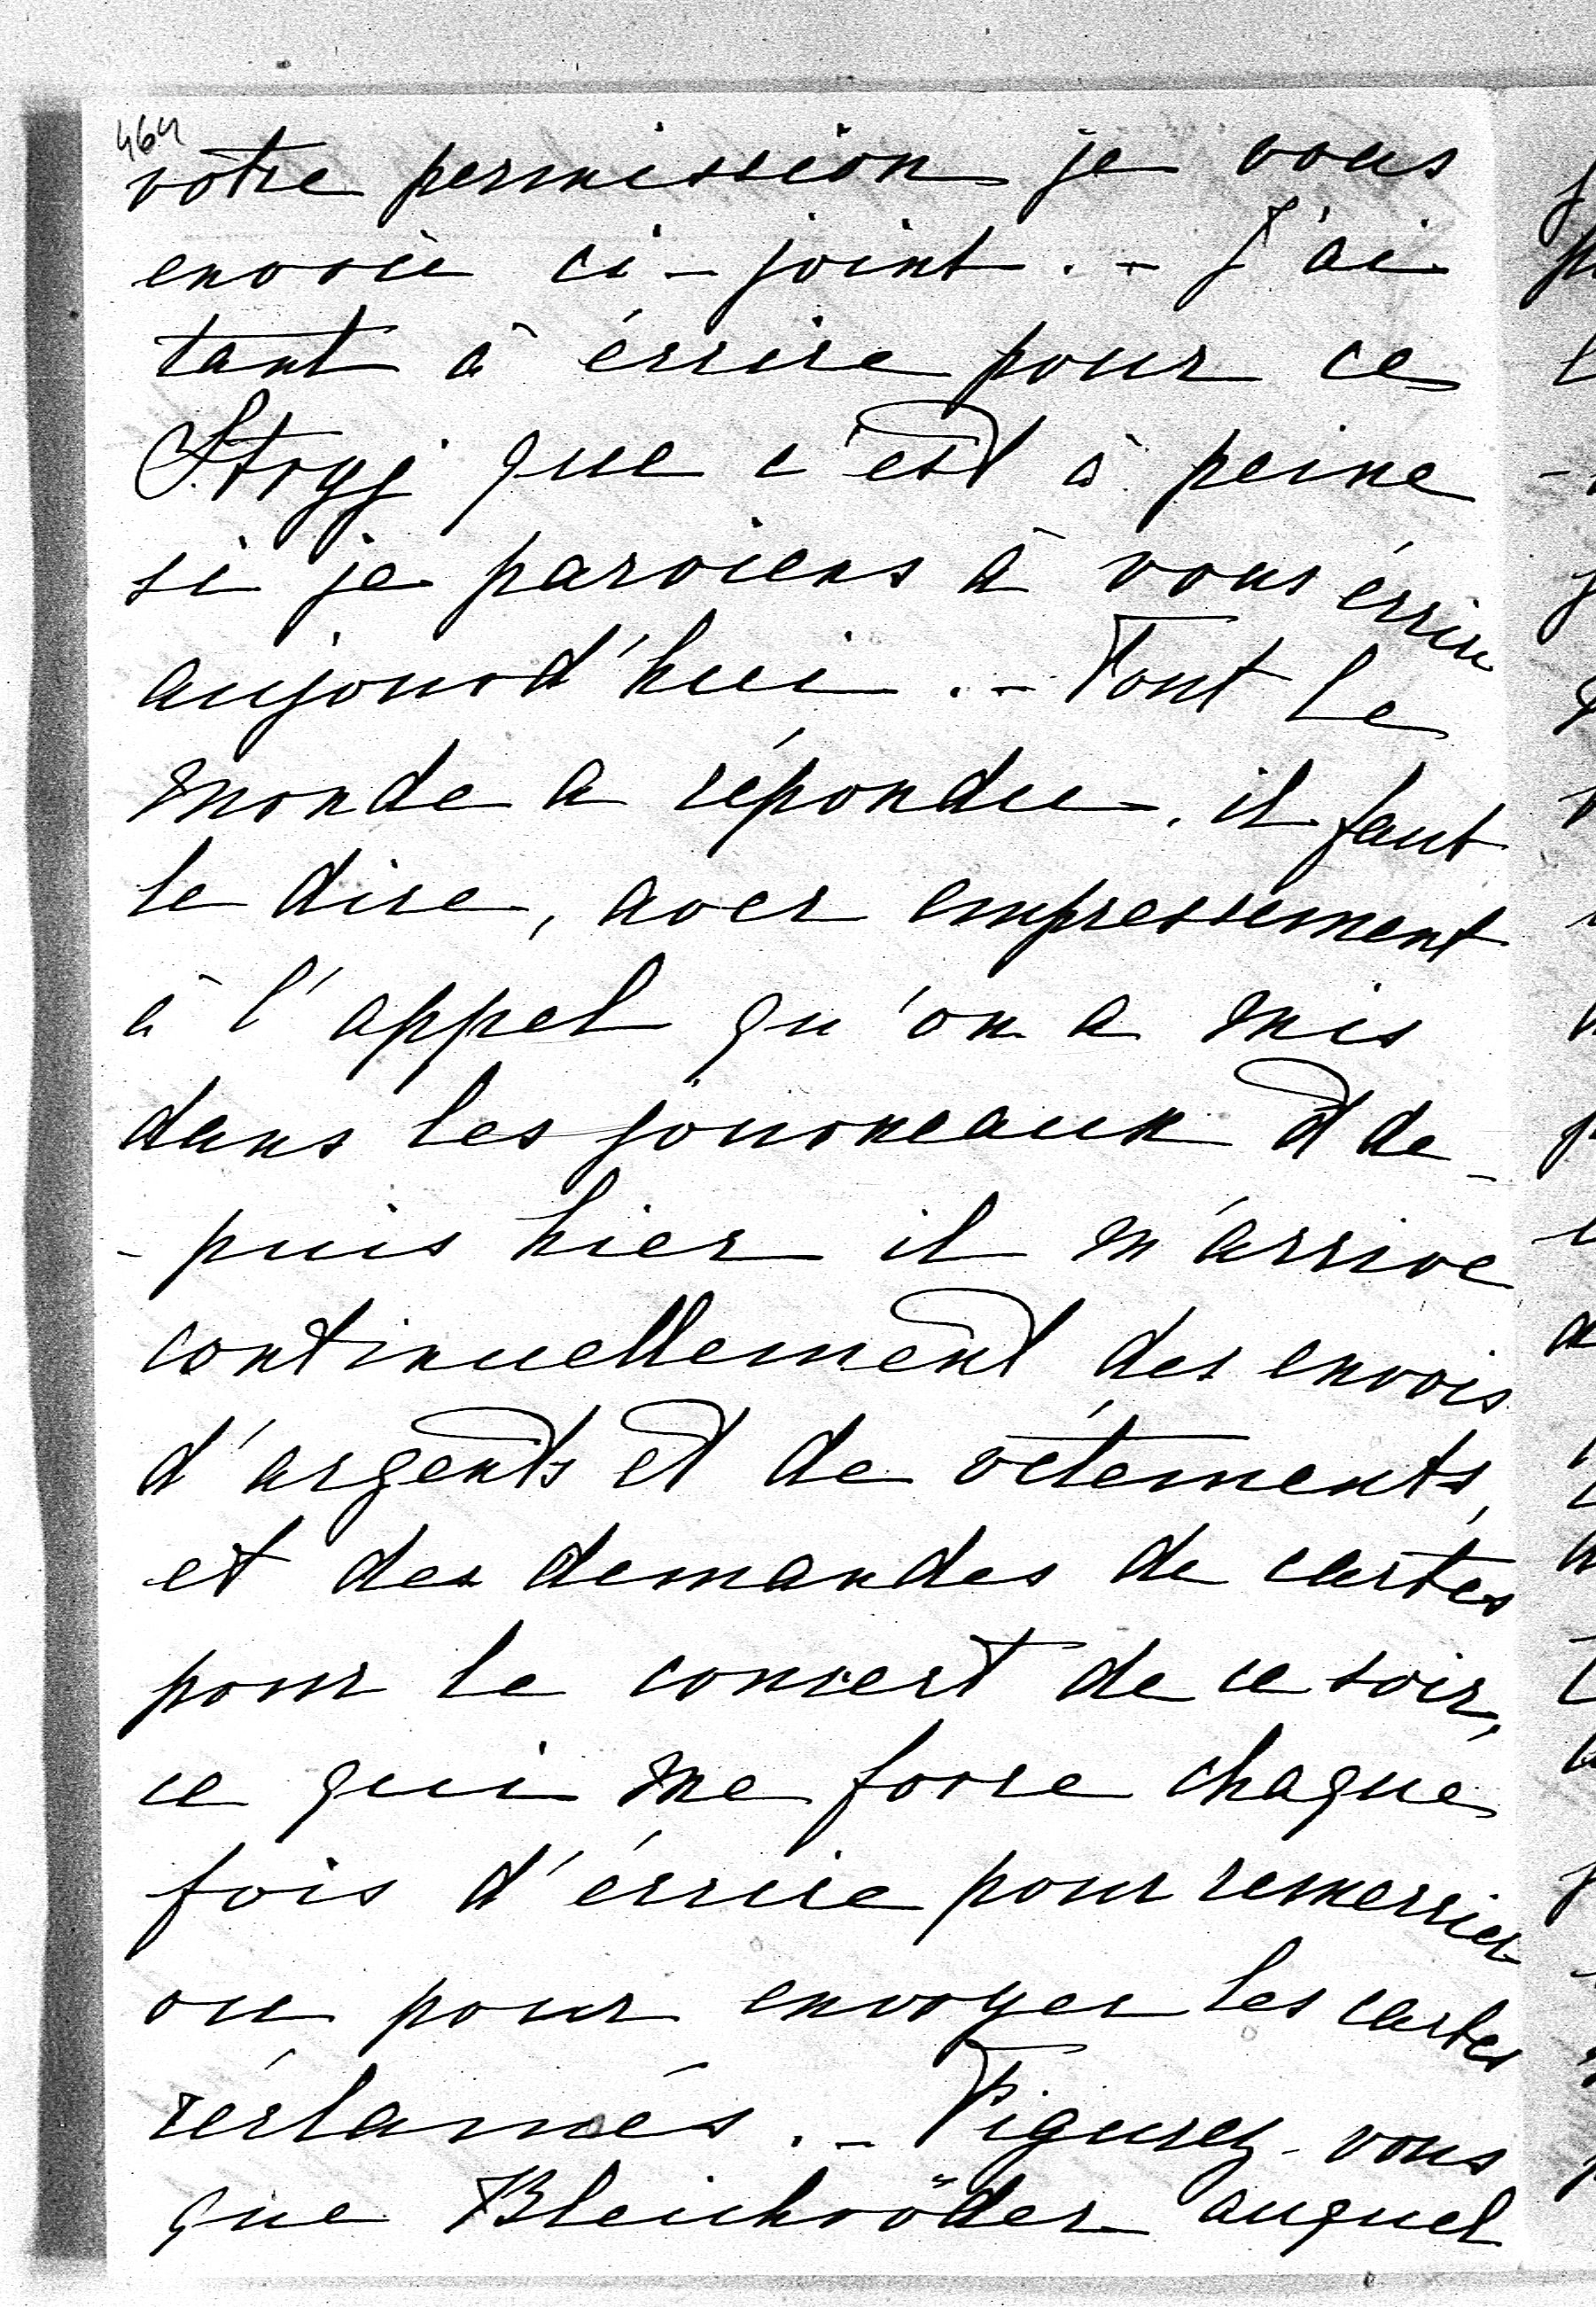 464
votre permission je vous
envoie ci-joint. - J'ai
tant à écrire pour ce
Stryj que c'est à peine
si je parviens à vous écrire
aujourd'hui. - Tout le
monde a répondu, il faut
le dire, avec empressement
à l'appel qu'on a mis
dans les journeaux et de-
-puis hier il m'arrive
continuellement des envois
d'argents et de vêtements,
et des demandes de cartes
pour le concert de ce soir,
ce qui me force chaque
fois d'écrire pour remercier
ou pour envoyer les cartes
réclamés. - Figurez-vous
que Bleichröder auquel